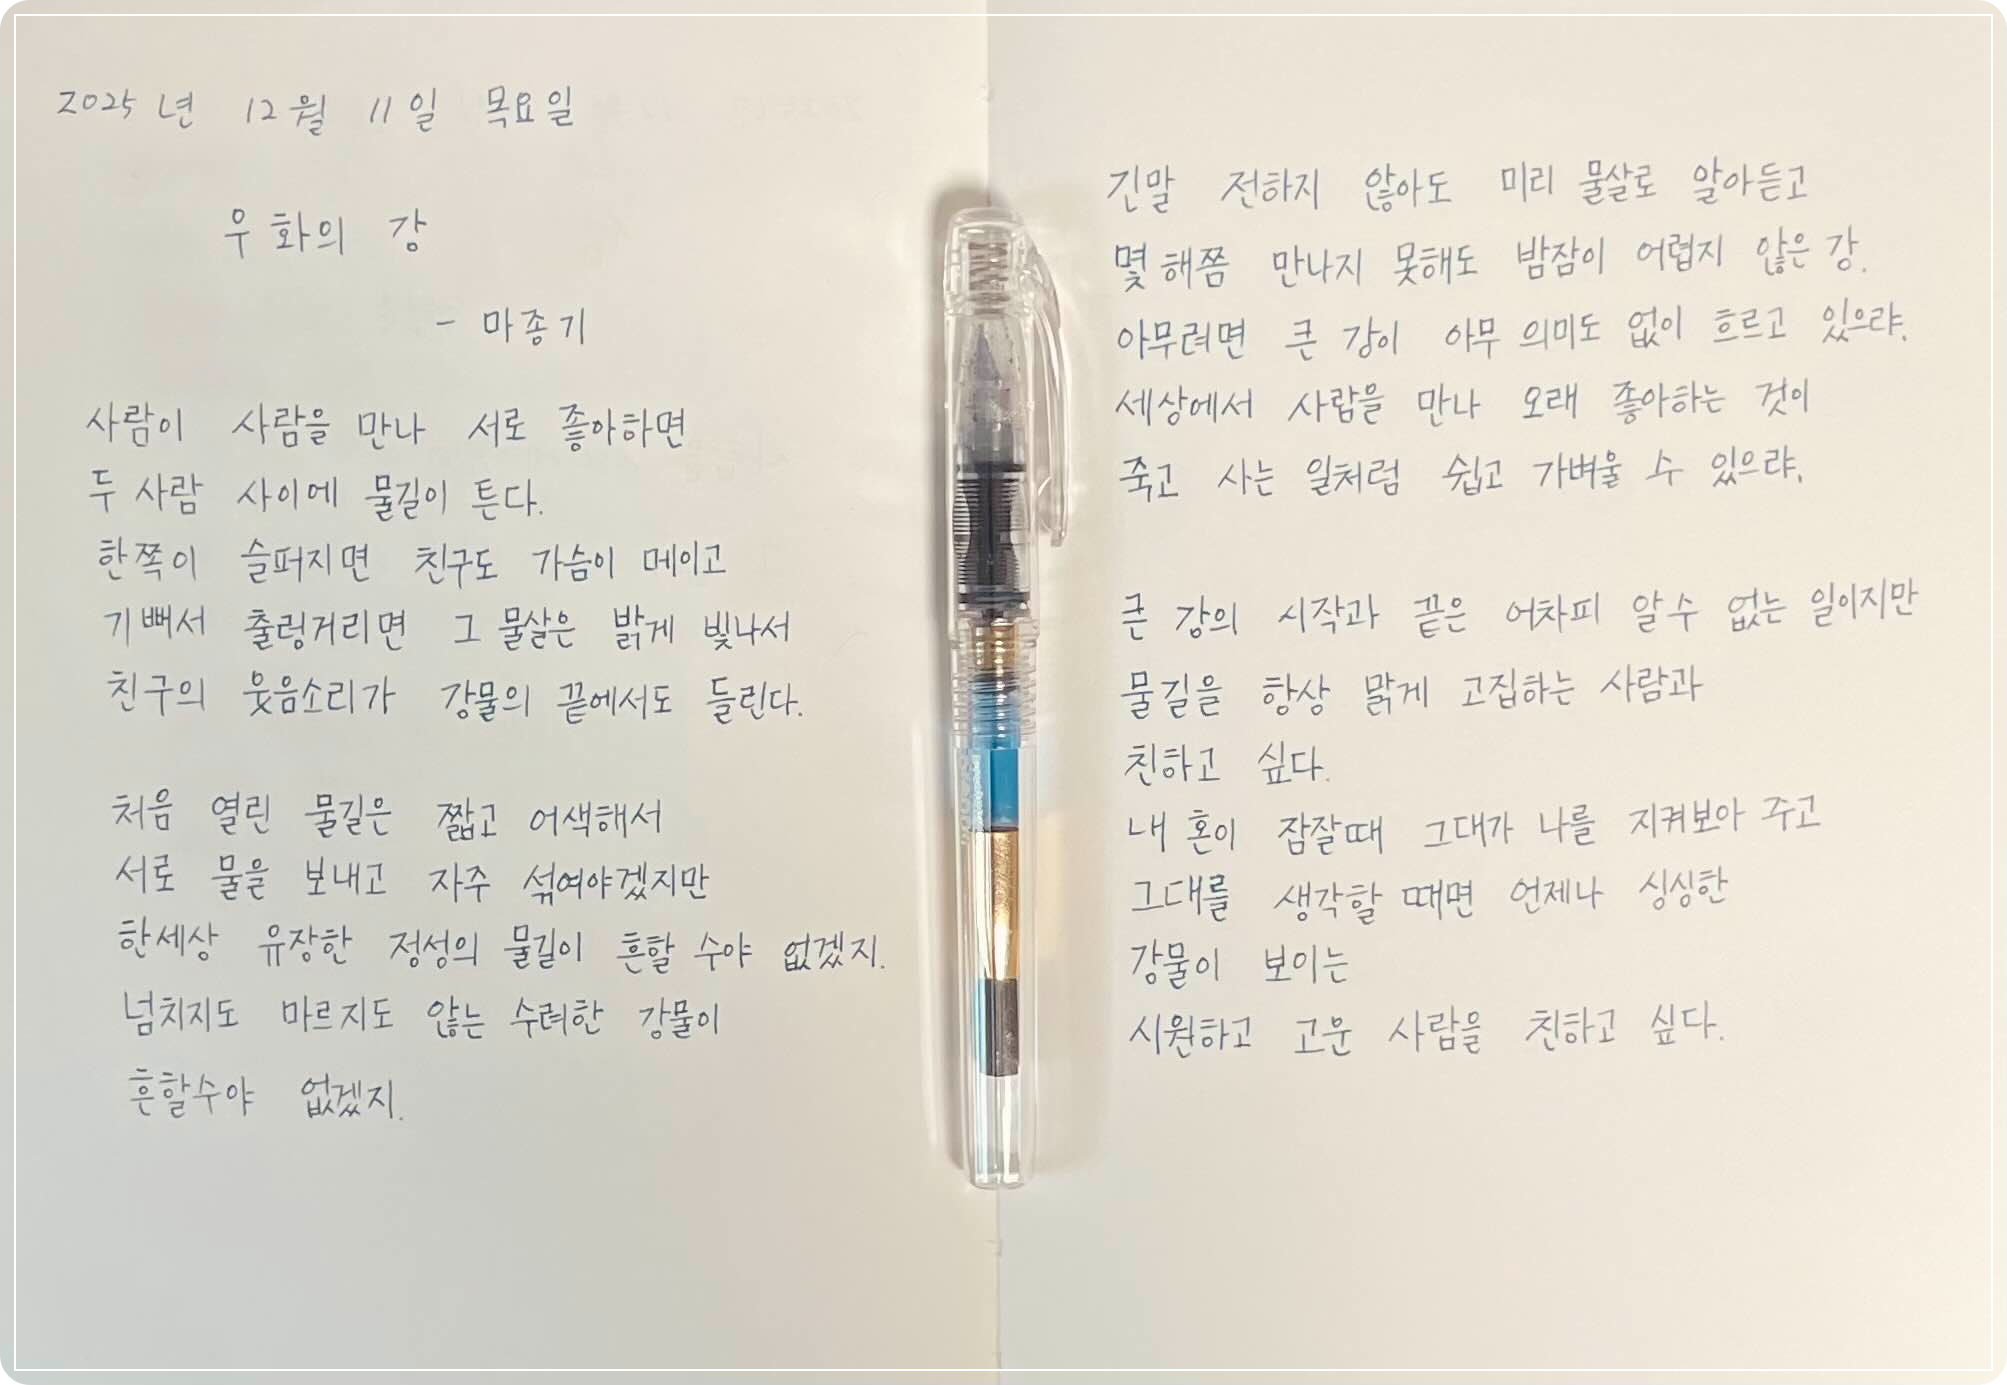 2025년 12월 11일 목요일
우화의 강
- 마종기
사람이 사람을 만나 서로 좋아하면
두 사람 사이에 물길이 튼다.
한쪽이 슬퍼지면 친구도 가슴이 메이고
기뻐서 출렁거리면 그 물살은 밝게 빛나서
친구의 웃음소리가 강물의 끝에서도 들린다.
처음 열린 물길은 짧고 어색해서
서로 물을 보내고 자주 섞여야겠지만
한세상 유장한 정성의 물길이 흔할 수야 없겠지.
넘치지도 마르지도 않는 수려한 강물이
흔할수야 없겠지.
긴말 전하지 않아도 미리 물살로 알아듣고
몇 해쯤 만나지 못해도 밤잠이 어렵지 않은 강.
아무려면 큰 강이 아무 의미도 없이 흐르고 있으랴.
세상에서 사람을 만나 오래 좋아하는 것이
죽고 사는 일처럼 쉽고 가벼울 수 있으랴.
큰 강의 시작과 끝은 어차피 알 수 없는 일이지만
물길을 항상 맑게 고집하는 사람과
친하고 싶다.
내 혼이 잠잘때 그대가 나를 지켜보아 주고
그대를 생각할 때면 언제나 싱싱한
강물이 보이는
시원하고 고운 사람을 친하고 싶다.